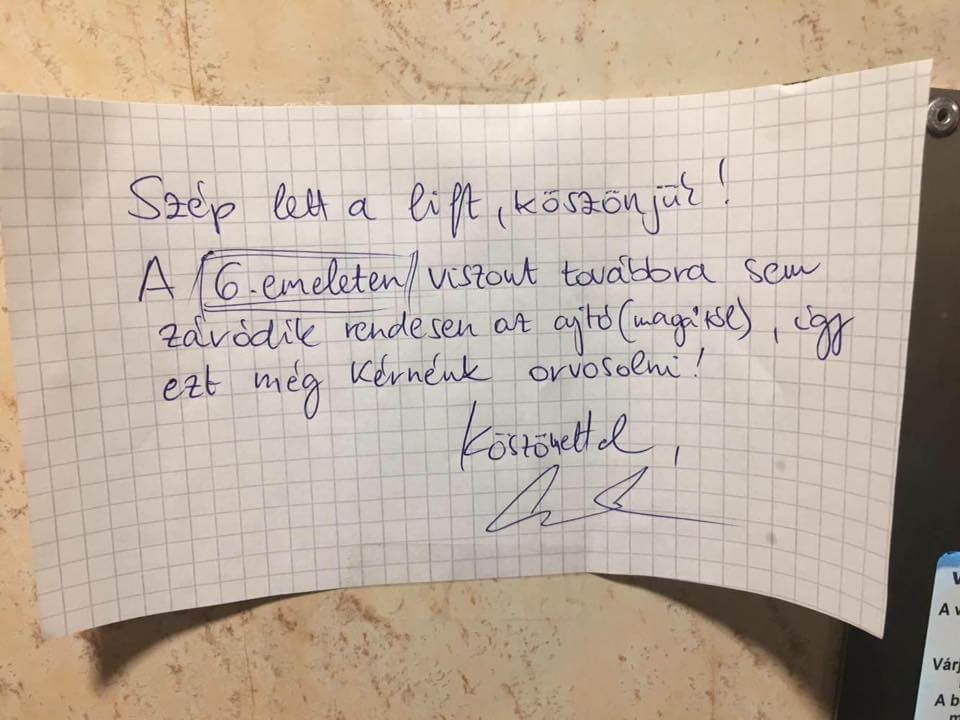 Szép lett a lift, köszönjük!
A 6. emeleten viszont továbbra sem
záródik rendesen az ajtó (magától), így
ezt még kérnénk orvosolni!
Köszönettel,
V
A v
Várj
A b